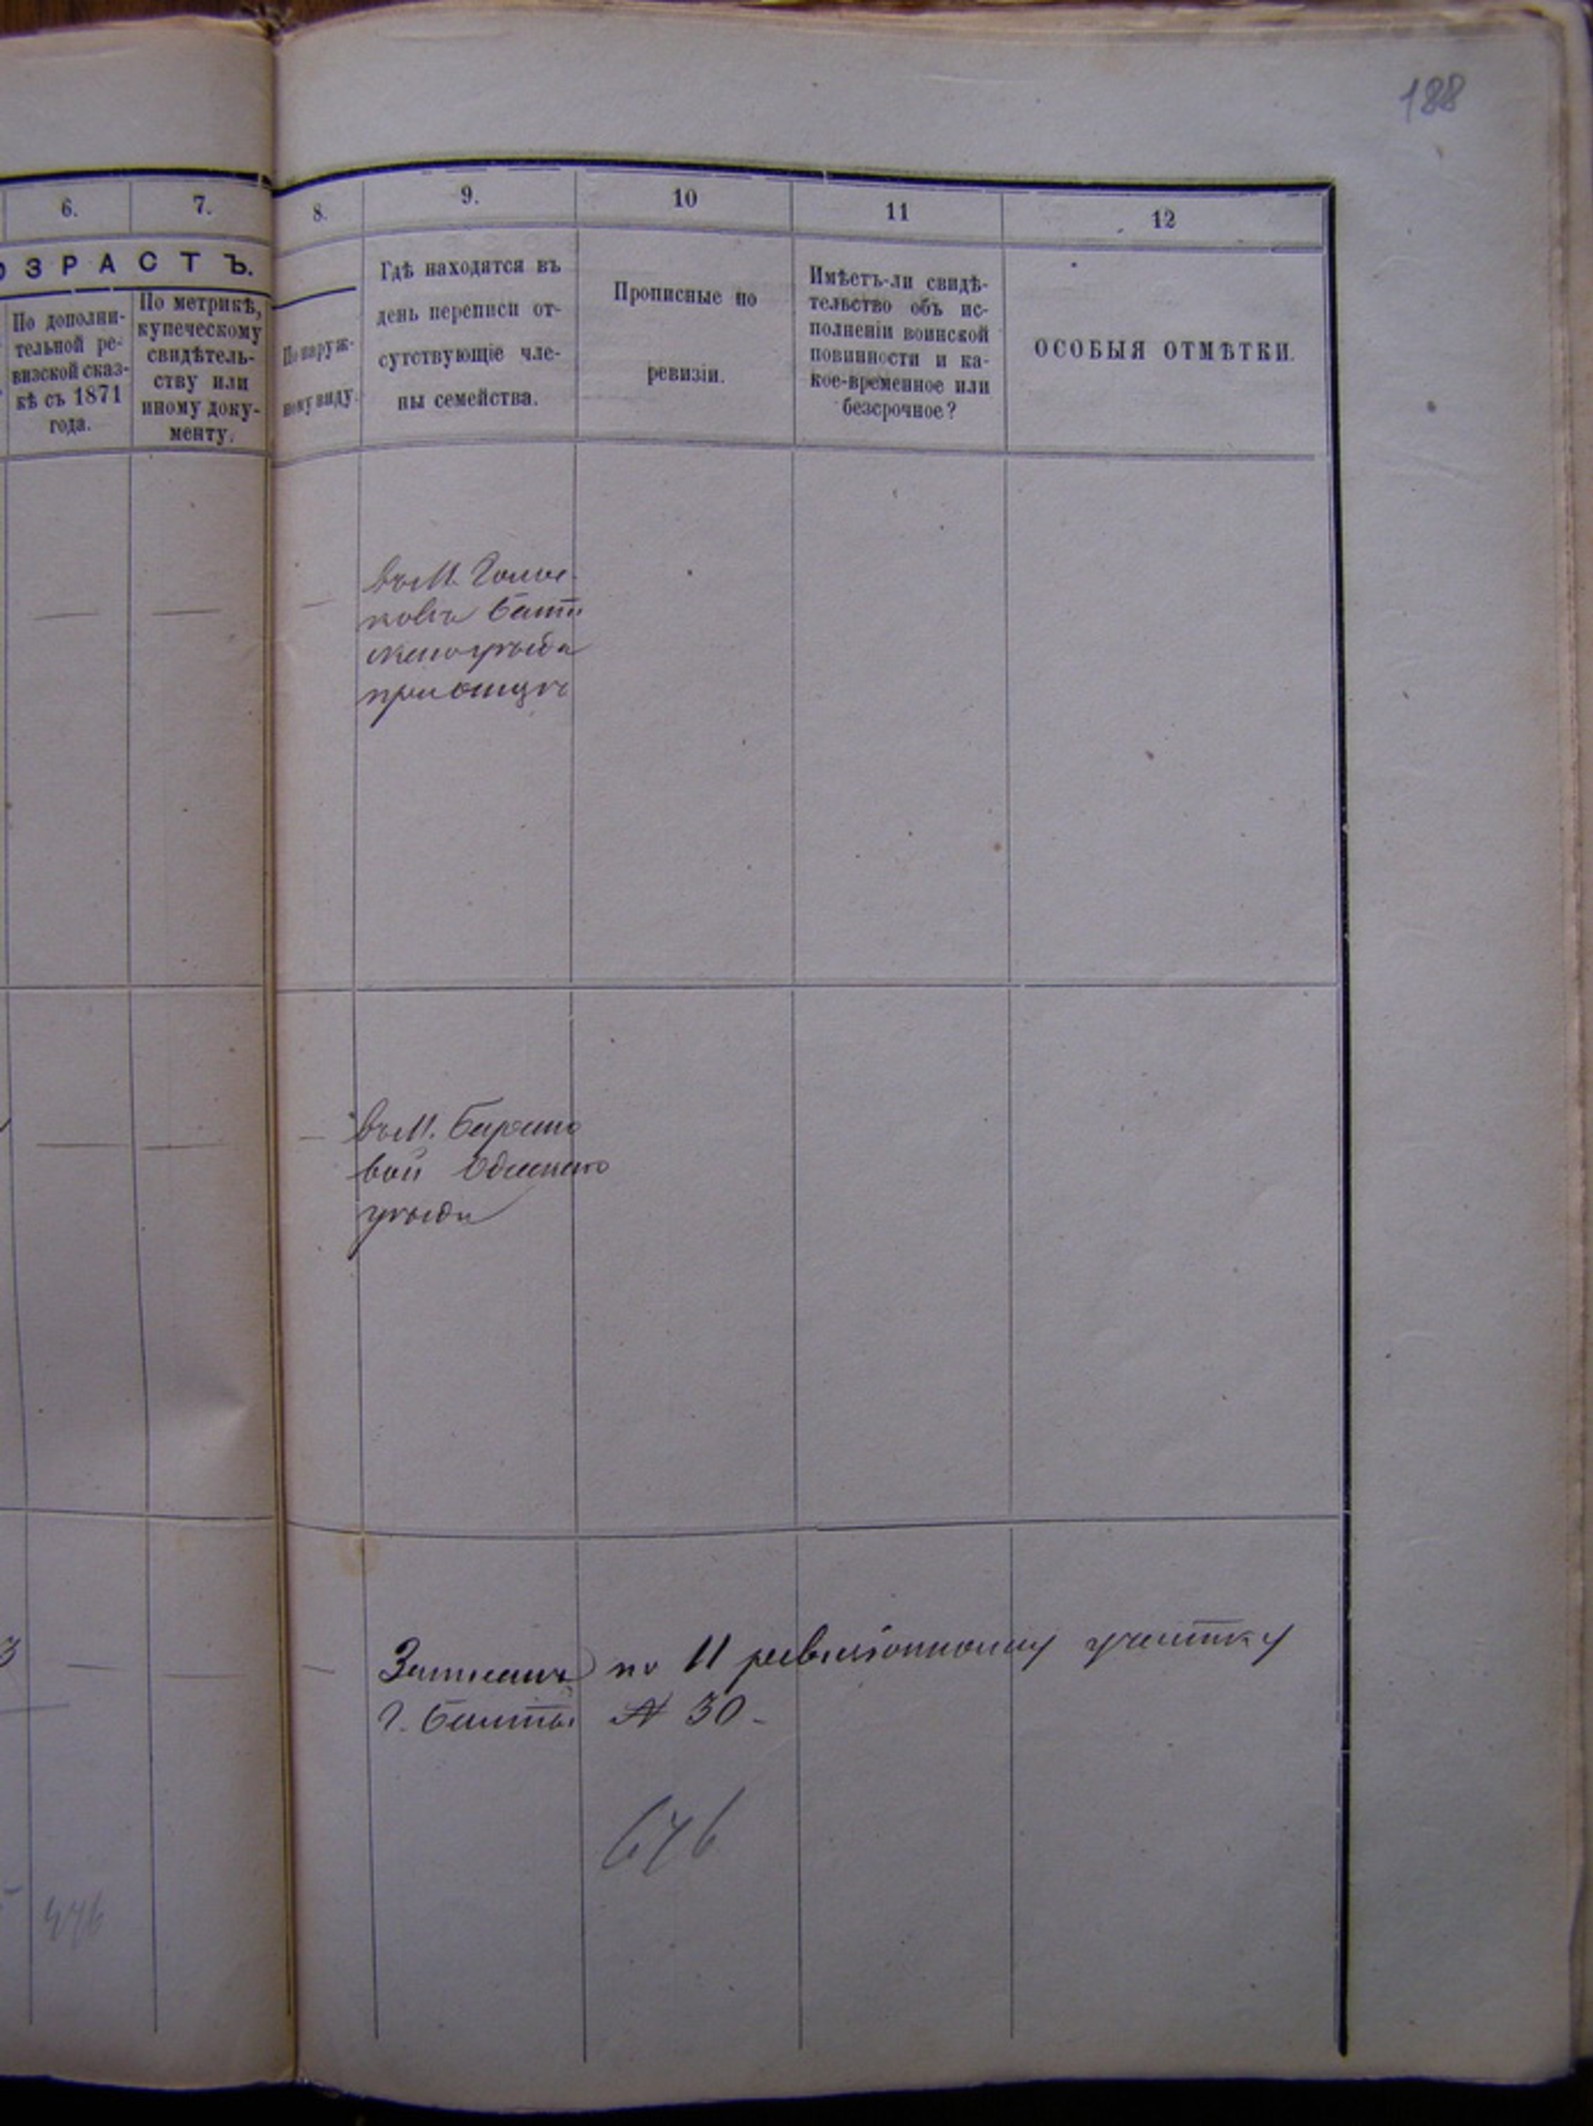 188
6.
7.
8.
9.
10
11
12
ОЗРАСТЪ.
По дополни-
тельной ре-
визской сказ-
кѣ съ 1871
года.
По метрикѣ,
купеческому
свидѣтель-
ству или
иному доку-
менту.
По наруж-
ному виду.
Гдѣ находятся въ
день переписи от-
сутствующіе чле-
ны семейства.
Прописные по
ревизіи.
Имѣетъ-ли свидѣ-
тельство объ ис-
полненіи воинской
повинности и ка-
кое-временное или
безсрочное?
ОСОБЫЯ ОТМѢТКИ.
въ М.
уѣзда
въ М.
вой Одесскаго
уѣзда
3
Записанъ по 11 ревизіонному участку
г. Балты № 30 -
676